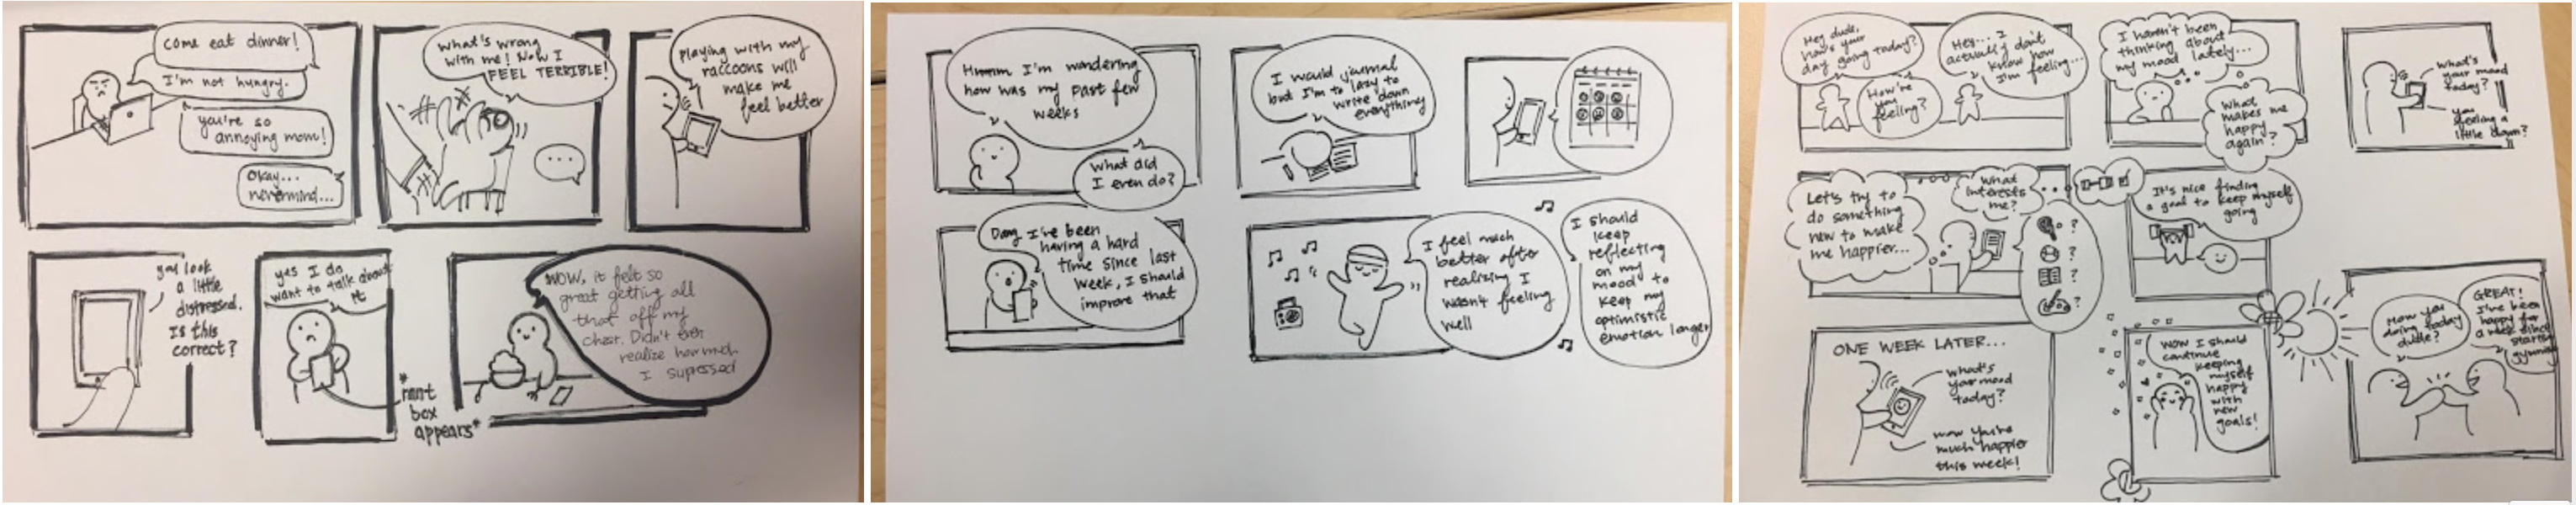 Come eat dinner!
I'm not hungry.
you're so
annoying mom!
Okay...
nevermind...
What's wrong
with me! Now I
FEEL TERRIBLE!
...
playing with my
raccoons will
make me
feel better
you look
a little
distressed.
Is this
correct?
yes I do
want to talk about
it
*rant
box
appears*
WOW, it felt so
great getting all
that off my
chest. Didn't even
realize how much
I supressed
Hmmm I'm wondering
how was my past few
weeks
What did
I even do?
I would journal
but I'm to lazy to
write down
everything
Dang I've been
having a hard
time since last
week, I should
improve that
I feel much
better after
realizing I
wasn't feeling
well
I should
keep
reflecting
on my
mood to
keep my
optimistic
emotion longer
Hey dude,
how's your
day going today?
How're
you
feeling?
Hey... I
actually don't
know how
I'm feeling...
I haven't been
thinking about
my mood lately...
What
makes me
happy
again?
What's
your mood
today?
you
feeling a
little down?
Let's try to
do something
new to make
me happier...
What
interests
me?
?
?
?
?
It's nice finding
a goal to keep myself
going
ONE WEEK LATER...
What's
your mood
today?
wow you're
much happier
this week!
WOW I should
continue
keeping
myself
happy
with
new
goals!
How you
doing today
dude?
GREAT!
I've been
happy for
a week since
starting